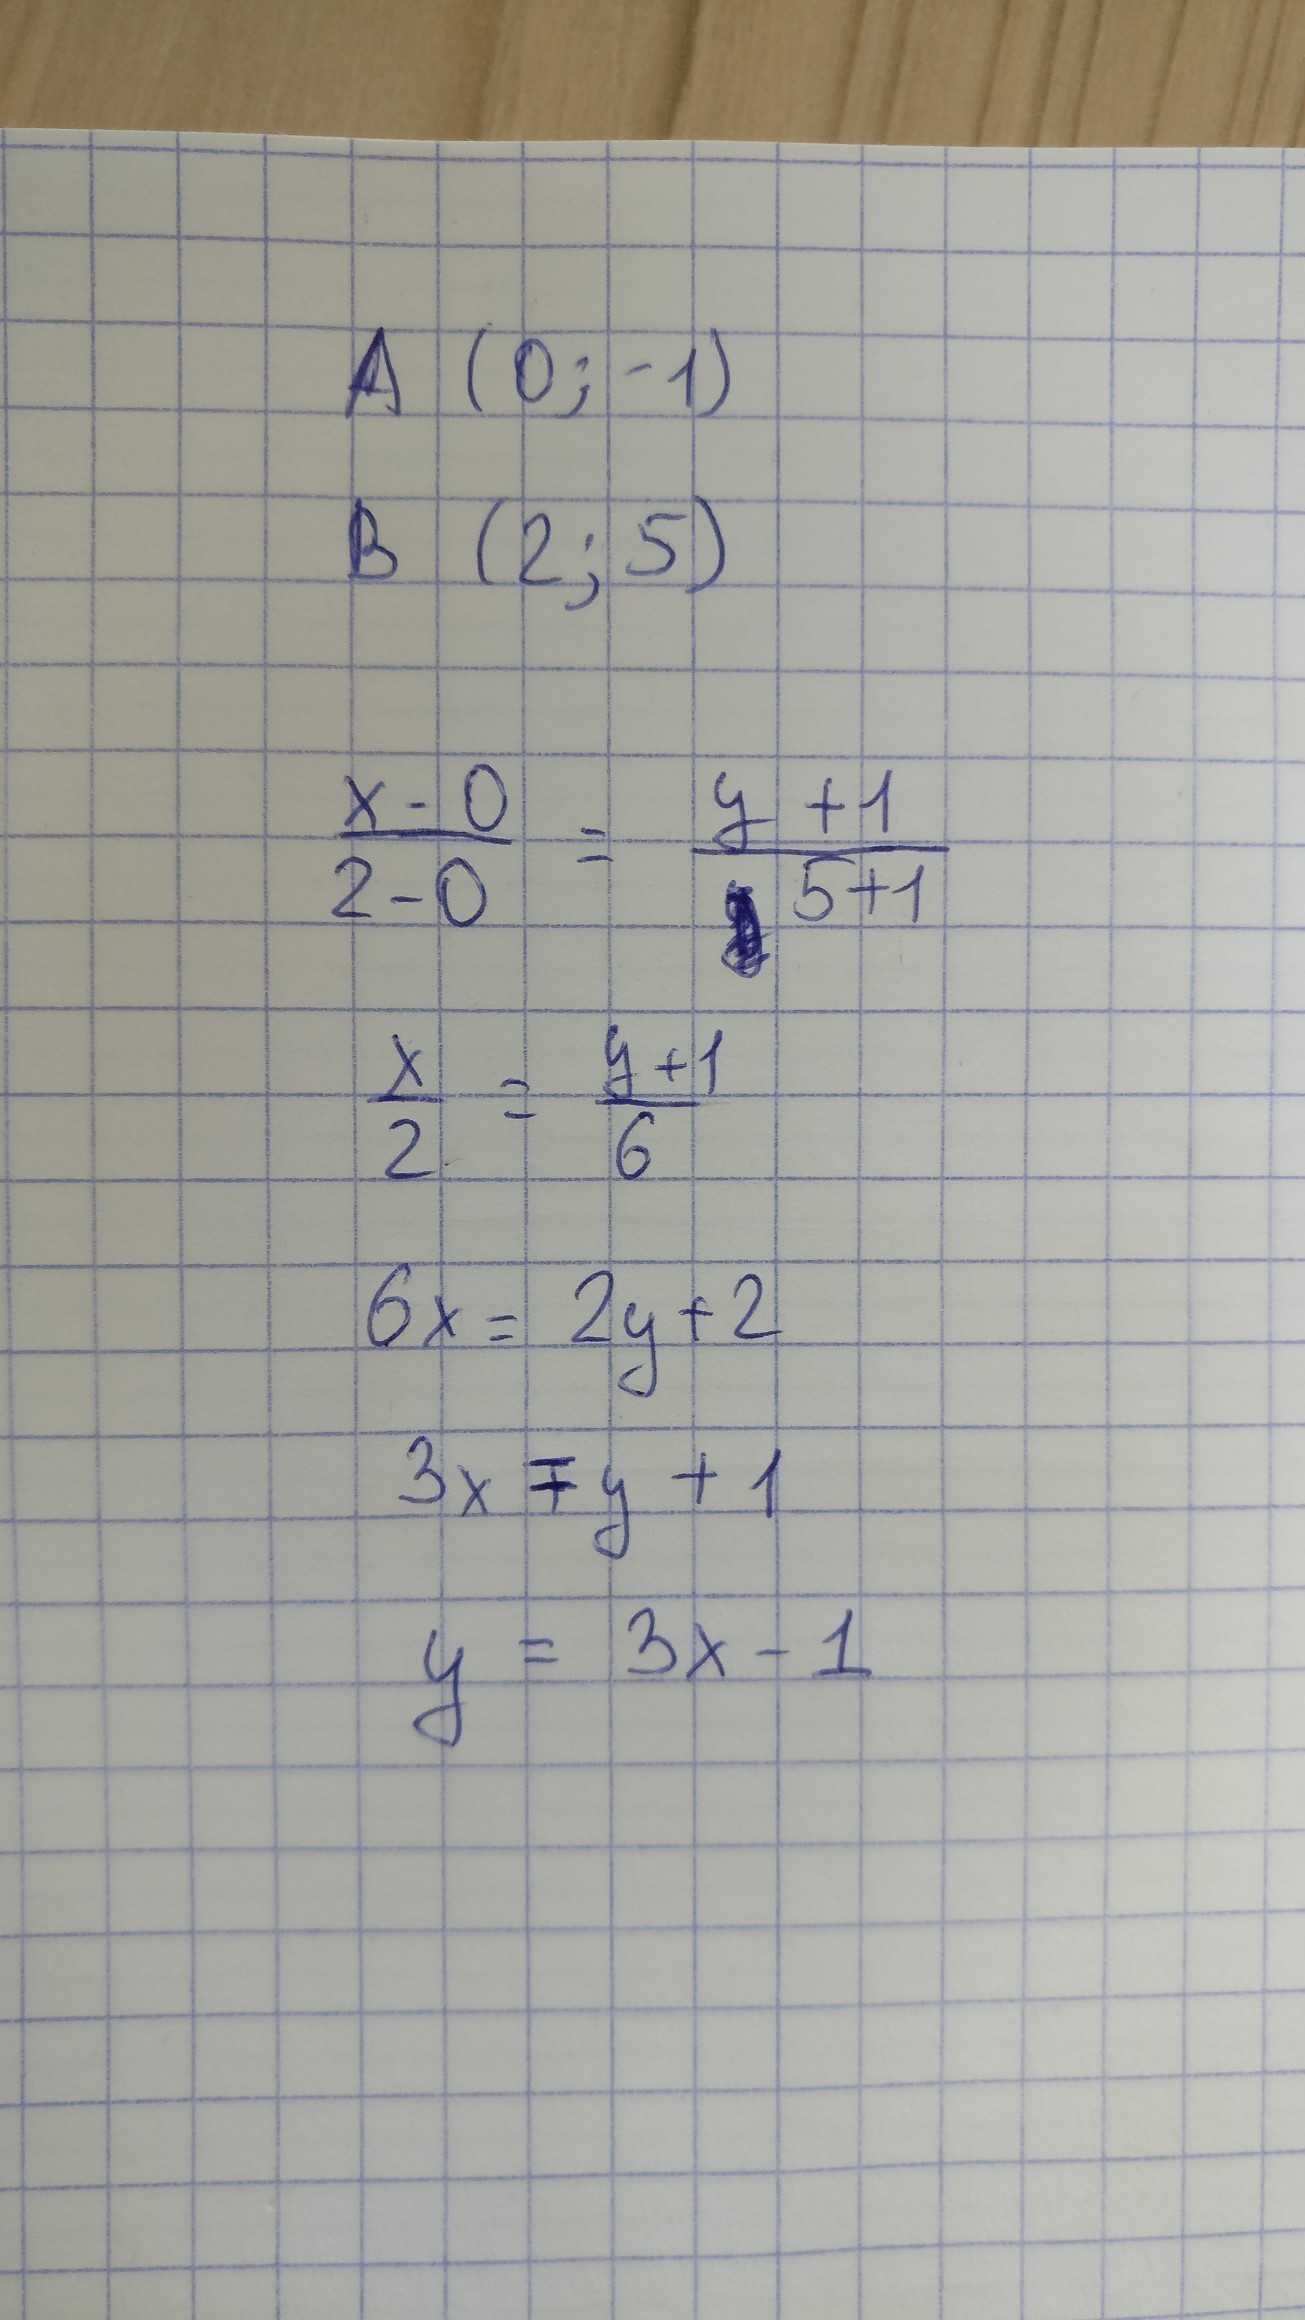 A (0; -1)
B (2; 5)
x - 0 / 2 - 0 = y + 1 / 5 + 1
x / 2 = y + 1 / 6
6x = 2y + 2
3x = y + 1
y = 3x - 1